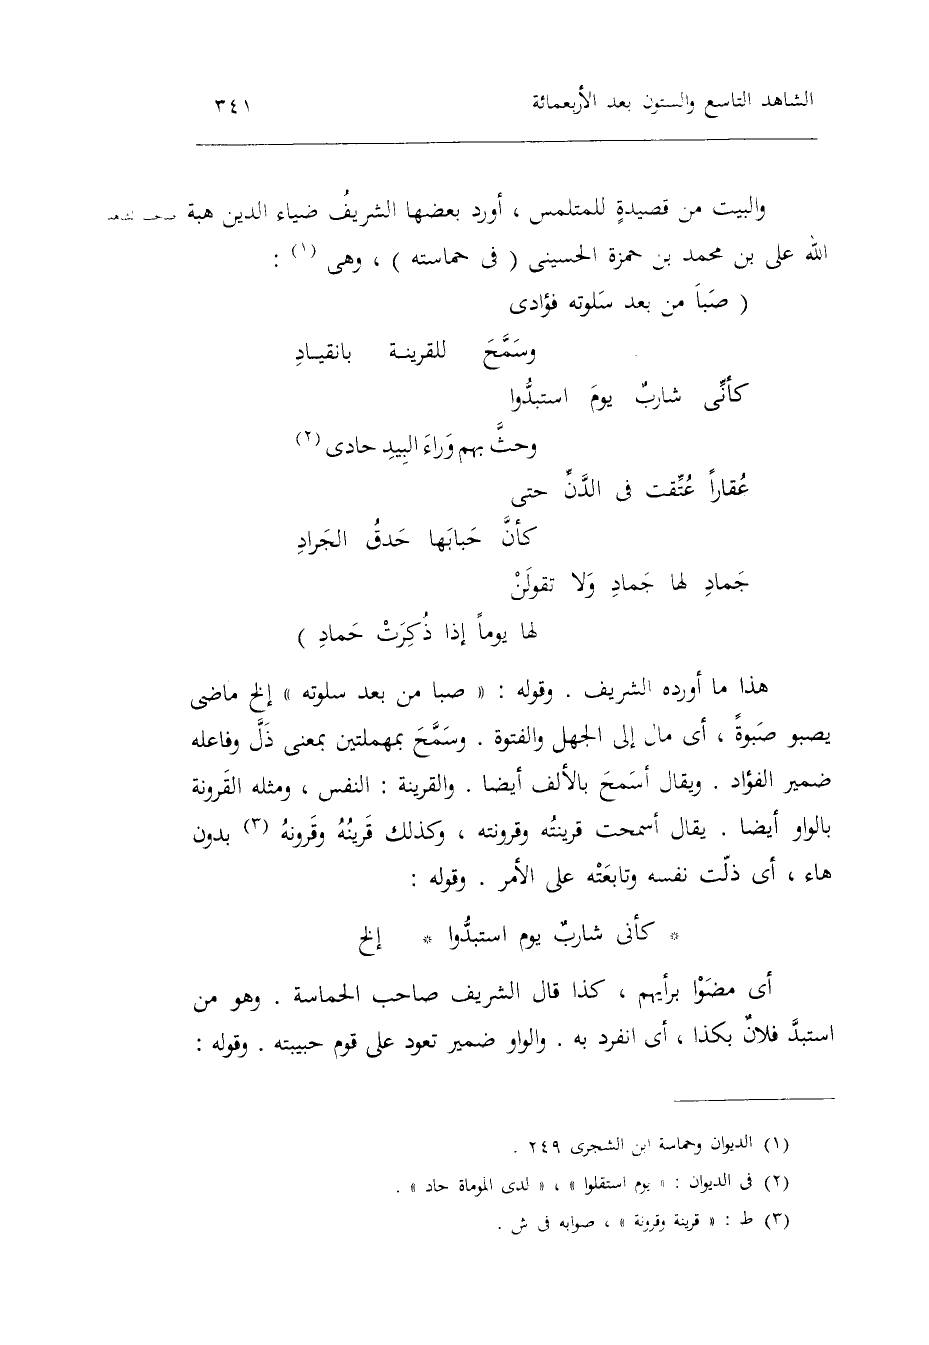 الشاهد التاسع والستون بعد الأربعمائة ٣٤١
والبيت من قصيدةٍ للمتلمس ، أورد بعضها الشريفُ ضياء الدين هبة
الله على بن محمد بن حمزة الحسينى ( فى حماسته ) ، وهى (١) :
( صَبَا من بعد سَلوته فؤادى
وسَمَّحَ للقرينـة بانقيـادِ
كأنِّى شاربٌ يومَ استبدُّوا
وحثَّ بهم وَراءَ البِيدِ حادى (٢)
عُقاراً عُتِّقت فى الدَّنِّ حتى
كأنَّ حَبابَها حَدقُ الجَرادِ
جَمادِ لها جَمادِ وَلا تقولَنْ
لها يوماً إذا ذُكِرَتْ حَمادِ )
هذا ما أورده الشريف . وقوله : « صبا من بعد سلوته » إلخ ماضى
يصبو صَبوةً ، أى مال إلى الجهل والفتوة . وسَمَّحَ بمهملتين بمعنى ذَلَّ وفاعله
ضمير الفؤاد . ويقال أسَمحَ بالألف أيضا . والقرينة : النفس ، ومثله القَرونة
بالواو أيضا . يقال أسمحت قرينتُه وقرونته ، وكذلك قَرينُهُ وقَرونهُ (٣) بدون
هاء ، أى ذلّت نفسه وتابعَتْه على الأمر . وقوله :
* كأنى شاربٌ يوم استبدُّوا * إلخ
أى مضَوْا برأيهم ، كذا قال الشريف صاحب الحماسة . وهو من
استبدَّ فلانٌ بكذا ، أى انفرد به . والواو ضمير تعود على قوم حبيبته . وقوله :
(١) الديوان وحماسة ابن الشجرى ٢٤٩ .
(٢) فى الديوان : « يوم استقلوا » ، « لدى الموماة حاد » .
(٣) ط : « قرينة وقرونة » ، صوابه فى ش .